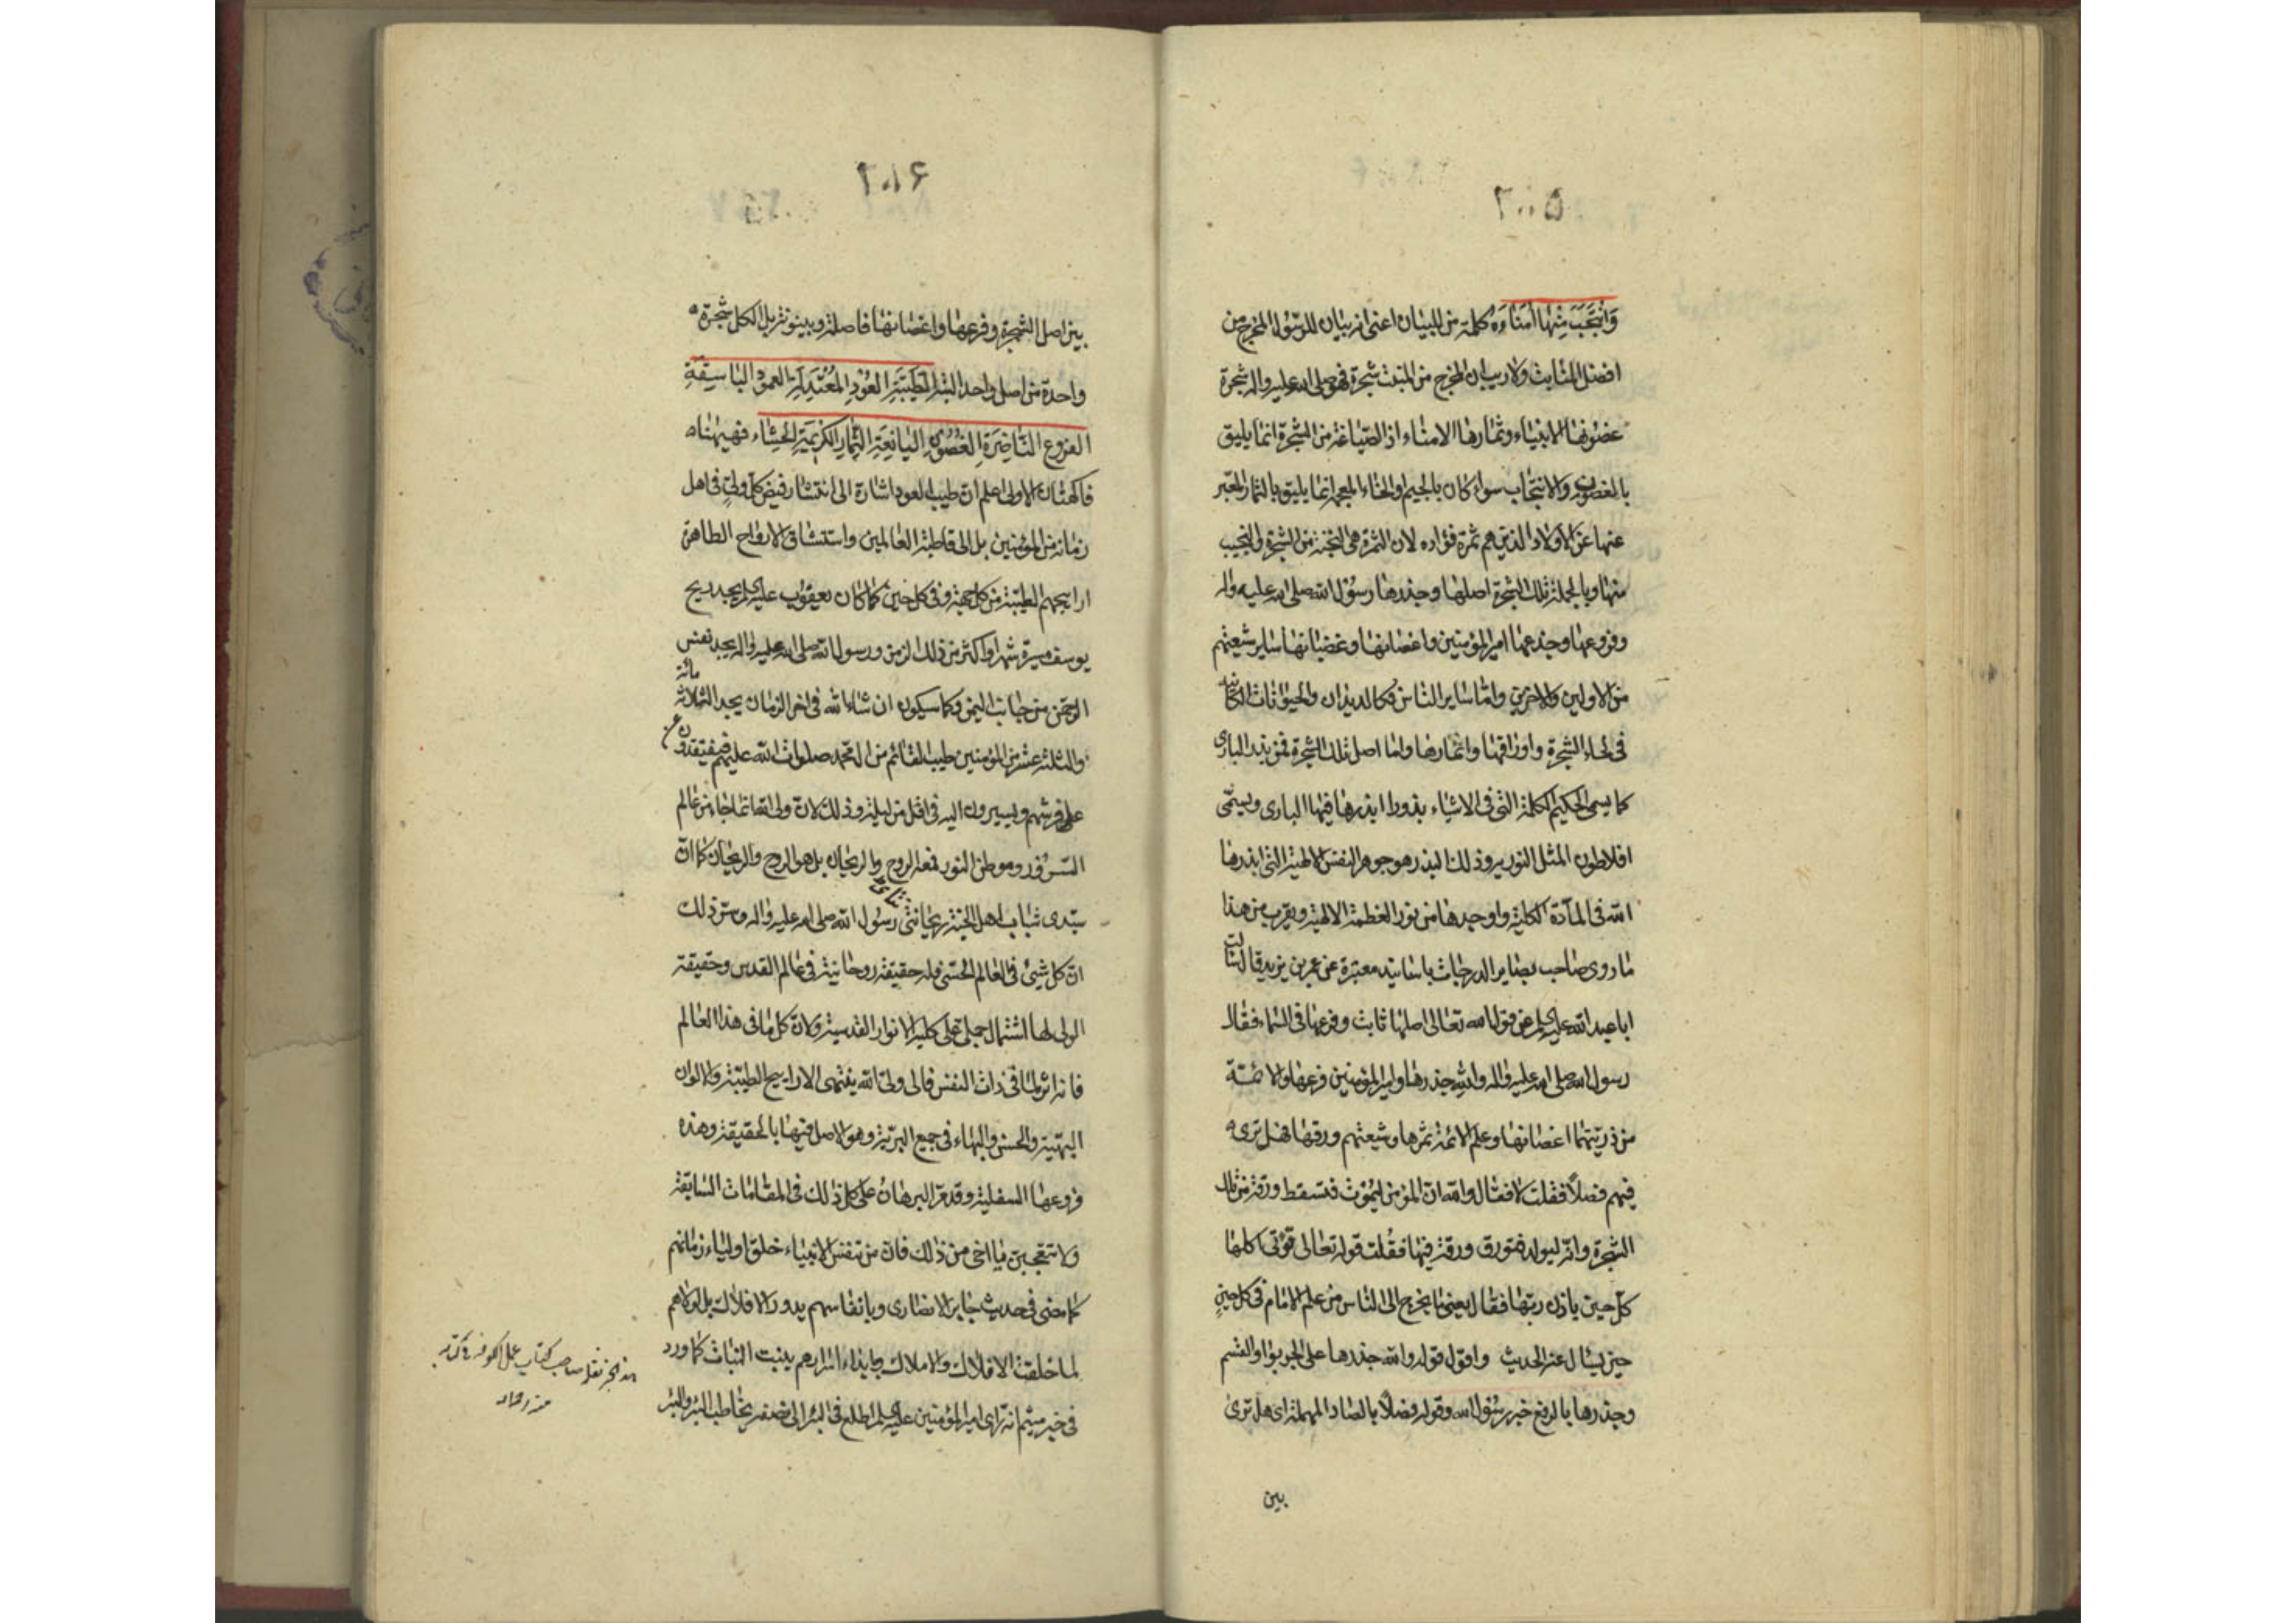 ٢٠٠٥
وَانْتَجَبَ مِنْهَا اُمَنَاءَهُ كلمة من للبيان اعنى انه بيان للرسول المخرج من
افضل المنابت ولا ريب ان المخرج من المنبت شجرة فهو صلى الله عليه واله شجرة
غصونها الانبياء وثمارها الامناء اذ الصياغة من الشجرة انما يليق
بالغصون والانتجاب سواء كان بالجيم او الخاء المعجمة انما يليق بالثمار المعبّر
عنها عن الاولاد الذين هم ثمرة فؤاده لان الثمرة هى النخبة من الشجرة والنجيب
منها وبالجملة تلك الشجرة اصلها وجذرها رسول الله صلى الله عليه واله
وفروعها وجذعها امير المؤمنين واغصانها وغضبانها ساير شيعتهم
من الاولين والاخرين واما ساير الناس فكالديدان والحيوانات الكائنة
فى لحاء الشجرة واوراقها واثمارها واما اصل تلك الشجرة فمن بذر البارى
كما يسمى الحكيم الكلمة التى فى الاشياء بذورا ابذرها فيها البارى ويسمّى
افلاطون المثل النورية وذلك البذر هو جوهر النفس الالهية التى ابذرها
الله فى المادّة الكلية واوجدها من نور العظمة الالهية ويقرب من هذا
ما روى صاحب بصاير الدرجات باسانيد معتبرة عن عمر بن يزيد قال سالت
ابا عبد الله عليه السلم عن قول الله تعالى اصلها ثابت وفرعها فى السماء فقال
رسول الله صلى الله عليه واله والله جذرها وامير المؤمنين فرعها والائمّة
من ذريتهما اغصانها وعلم الائمة ثمرها وشيعتهم ورقها فهل ترى
فيهم فضلاً فقلت لا فقال والله ان المؤمن ليموت فتسقط ورقة من تلك
الشجرة وانه ليولد فتورق ورقة فيها فقلت قوله تعالى تؤتى اكلها
كل حين باذن ربها فقال يعنى ما يخرج الى الناس من علم الامام فى كل حين
حين يسئال عنه الحديث واقول قوله والله جذرها على الجر بواو القسم
وجذرها بالرفع خبر رسول الله وقوله فصلاً بالصاد المهملة اى هل ترى
بين
٢٠٠۶
بين اصل الشجرة وفرعها واغصانها فاصلة وبينونة بل الكل شجرة
واحدة من اصل واحد الطَّيِّبَةِ العُوْدِ المُعْتَدِلَةِ العمود البَاسِقَةِ
الفروع النَّاضِرَةِ الغُصُوْنِ اليَانِعَةِ الثِّمَارِ الكَرِيْمَةِ الحشاء فهيهنا
فاكهتان الاولى اعلم ان طيب العود اشارة الى انتشار فيض كل ولى فى اهل
زمانه من المؤمنين بل الى قاطبة العالمين واستنشاق الارواح الطاهرة
اراييجهم الطيبة من كل جهة وفى كل حين كما كان يعقوب عليه السلم يجد ريح
يوسف مسيرة شهر او اكثر من ذلك الزمن ورسول الله صلى الله عليه واله يجد نفس
الرحمن من جانب اليمن وكما سيكون ان شاء الله فى اخر الزمان يجد الثلاثمائة
والثلثة عشر من المؤمنين طيب القائم من ال محمد صلوات الله عليهم فيفتقدون عن
على فرشهم ويسيرون اليه فى اقل من ليلة وذلك لان ولى الله انما جاء من عالم
السرور وموطن النور فمعه الروح والريحان بل هو الروح والريحان كما ان
سيّدى شباب اهل الجنة ريحانتى رسول الله صلى الله عليه واله وسرّ ذلك
ان كل شيئ فى العالم الحسّى فله حقيقة روحانية فى عالم القدس وحقيقة
الولى لها اشتمال جملى على كلية الانوار القدسية ولان كل ما فى هذا العالم
فانه اثر لما فى ذات النفس فالى ولى الله ينتهى الاراييح الطيبة والالوان
البهيّة والحسن والبهاء فى جميع البريّة وهو الاصل فيها بالحقيقة وهذه
فروعها السفلية وقد مرّ البرهان على كل ذلك فى المقامات السابقة
ولا تتعجبن يا اخى من ذلك فان من تنفس الانبياء خلق اولياء زمانهم
كما مضى فى حديث جابر الانصارى وبانفاسهم يدور الافلاك بل لولاهم
لما خلقت الافلاك والاملاك وبانداء اسرارهم ينبت النبات كما ورد
فى خبر ميثم انه راى امير المؤمنين عليه السلم اطلع فى البئر الى نصفه يخاطب البئر والبئر
هذا الخبر نقله صاحب كتاب